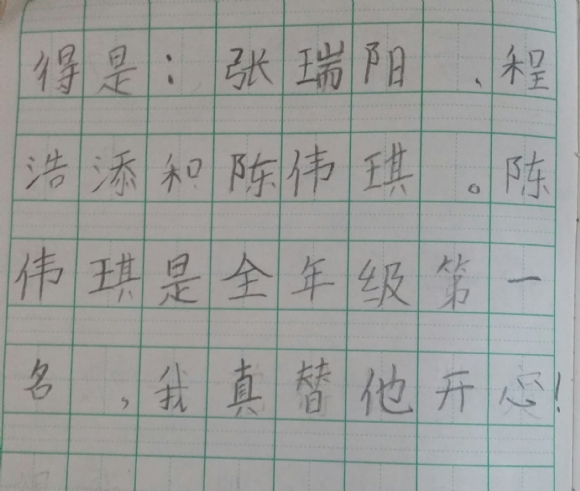 得是：张瑞阳、程
浩添和陈伟琪。陈
伟琪是全年级第一
名，我真替他开心！